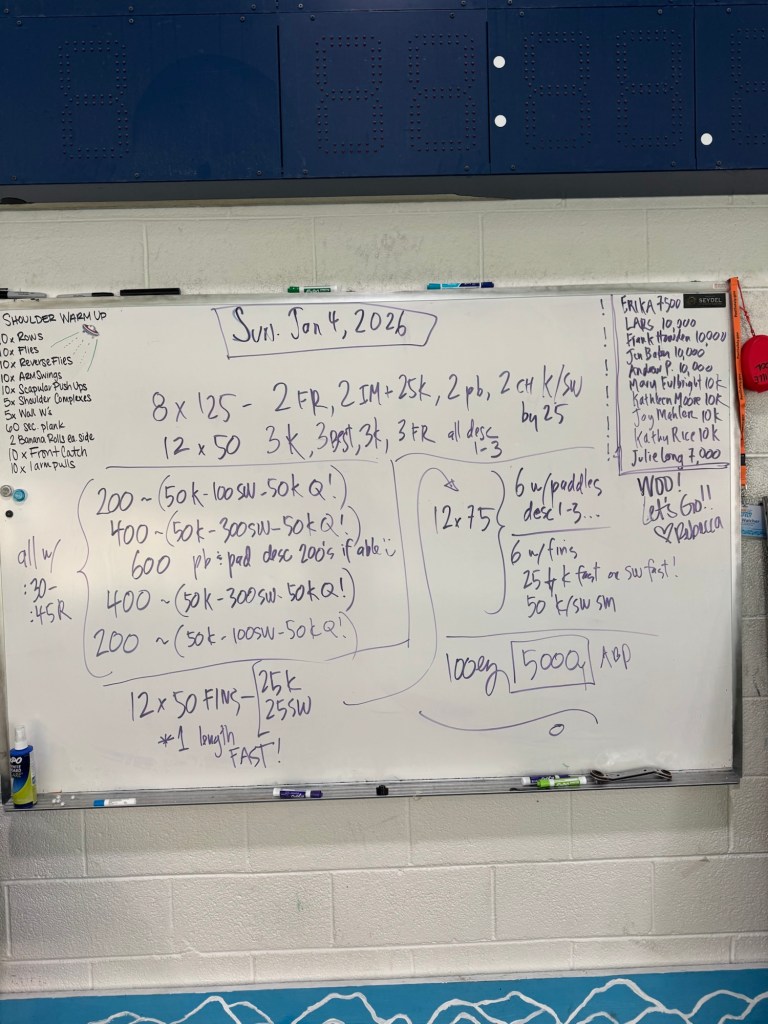 SHOULDER WARM UP
0x Rows
10x Flies
10x Reverse Flies
10x ARM Swings
10x Scapular Push Ups
5x Shoulder Complexes
5x Wall W's
60 sec. plank
2 Banana Rolls ea. side
10x Front Catch
10x 1 arm pulls
Sun. Jan 4, 2026
8 x 125 - 2 FR, 2 IM + 25K, 2 pb, 2 CH K/SW
by 25
12 x 50 3K, 3 Best, 3K, 3 FR all desc
1-3
all w/
:30-
:45R
200 ~ (50K-100SW-50KQ!)
400 ~ (50K-300SW-50KQ!)
600 pb & pad desc 200's if able
400 ~ (50K-300SW-50KQ!)
200 ~ (50K-100SW-50KQ!)
12 x 50 FINS - 25K
25SW
*1 length
FAST!
12 x 75
6 w/paddles
desc 1-3...
6 w/ fins
25 K fast or SW fast!
50 K/SW sm
100ez 5000y
ERIKA 7500
LARS 10,000
Frank 10,000
Jen 10,000
Andrew P. 10,000
Mary Fulbright 10K
Kathleen Moore 10K
Joy 10K
Kathy Rice 10K
Julie Long 7,000
WOO!
Let's Go!!
♡Rebecca
SEYDEL
EXPO